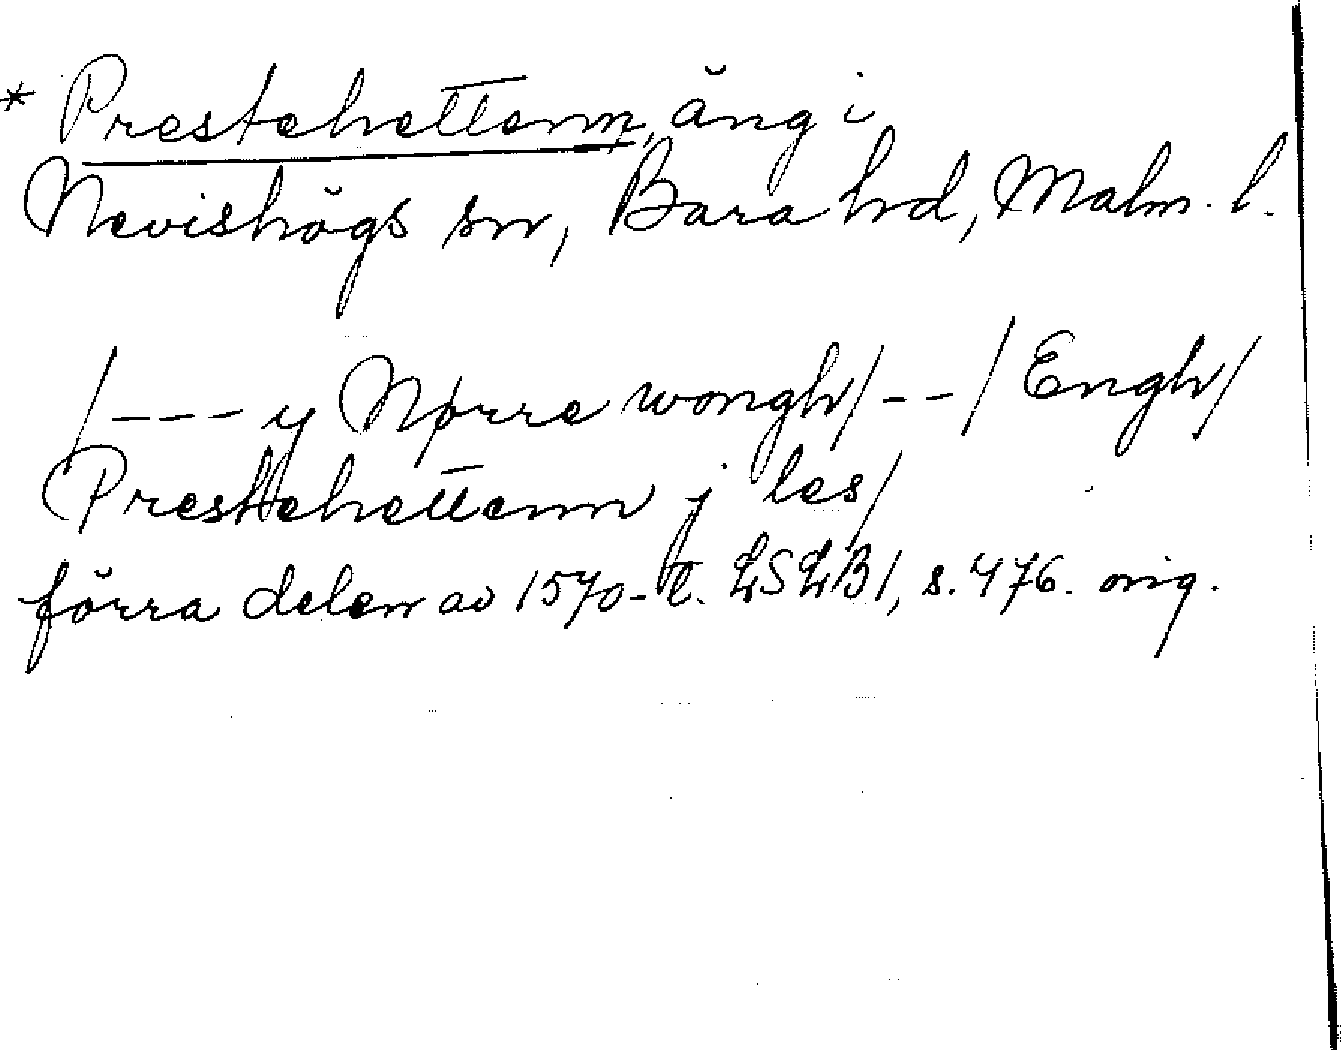 * Prestehettenn, äng i
Nevishögs sn, Bara hd, Malm. l.
/--- y Nørre wongh/ -- / Engh/
Prestehettenn j les/
förra delen av 1570-t. LSLB1, s. 476. orig.